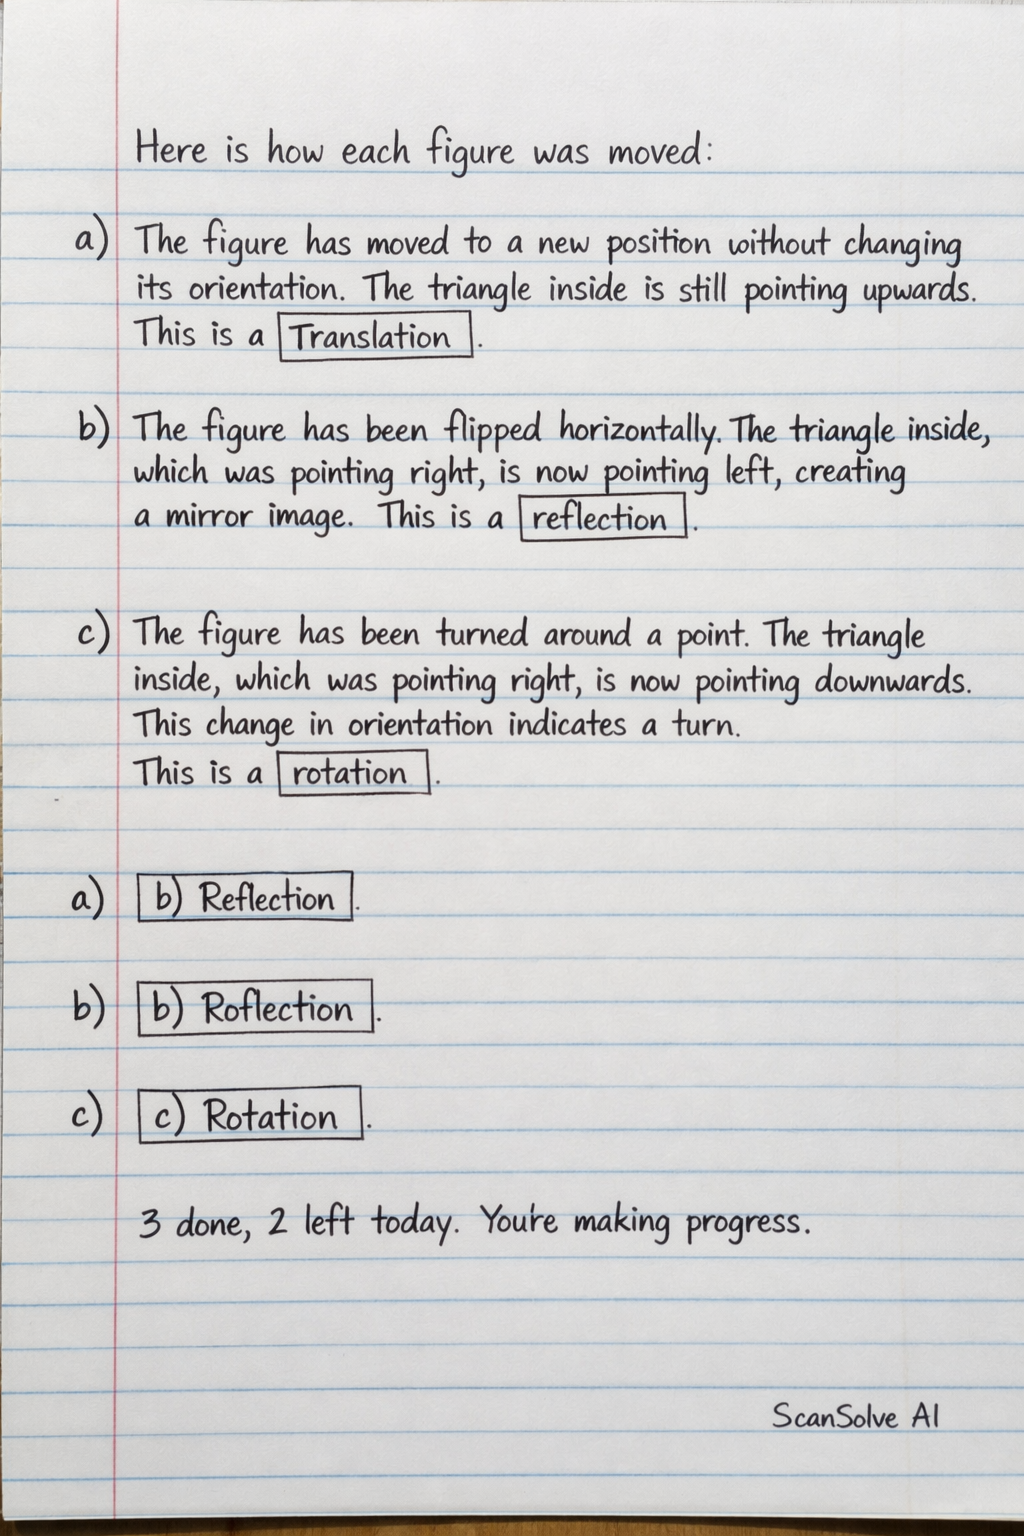 Here is how each figure was moved:
a) The figure has moved to a new position without changing
its orientation. The triangle inside is still pointing upwards.
This is a Translation.
b) The figure has been flipped horizontally. The triangle inside,
which was pointing right, is now pointing left, creating
a mirror image. This is a reflection.
c) The figure has been turned around a point. The triangle
inside, which was pointing right, is now pointing downwards.
This change in orientation indicates a turn.
This is a rotation.
a) b) Reflection.
b) b) Roflection.
c) c) Rotation.
3 done, 2 left today. You're making progress.
ScanSolve AI